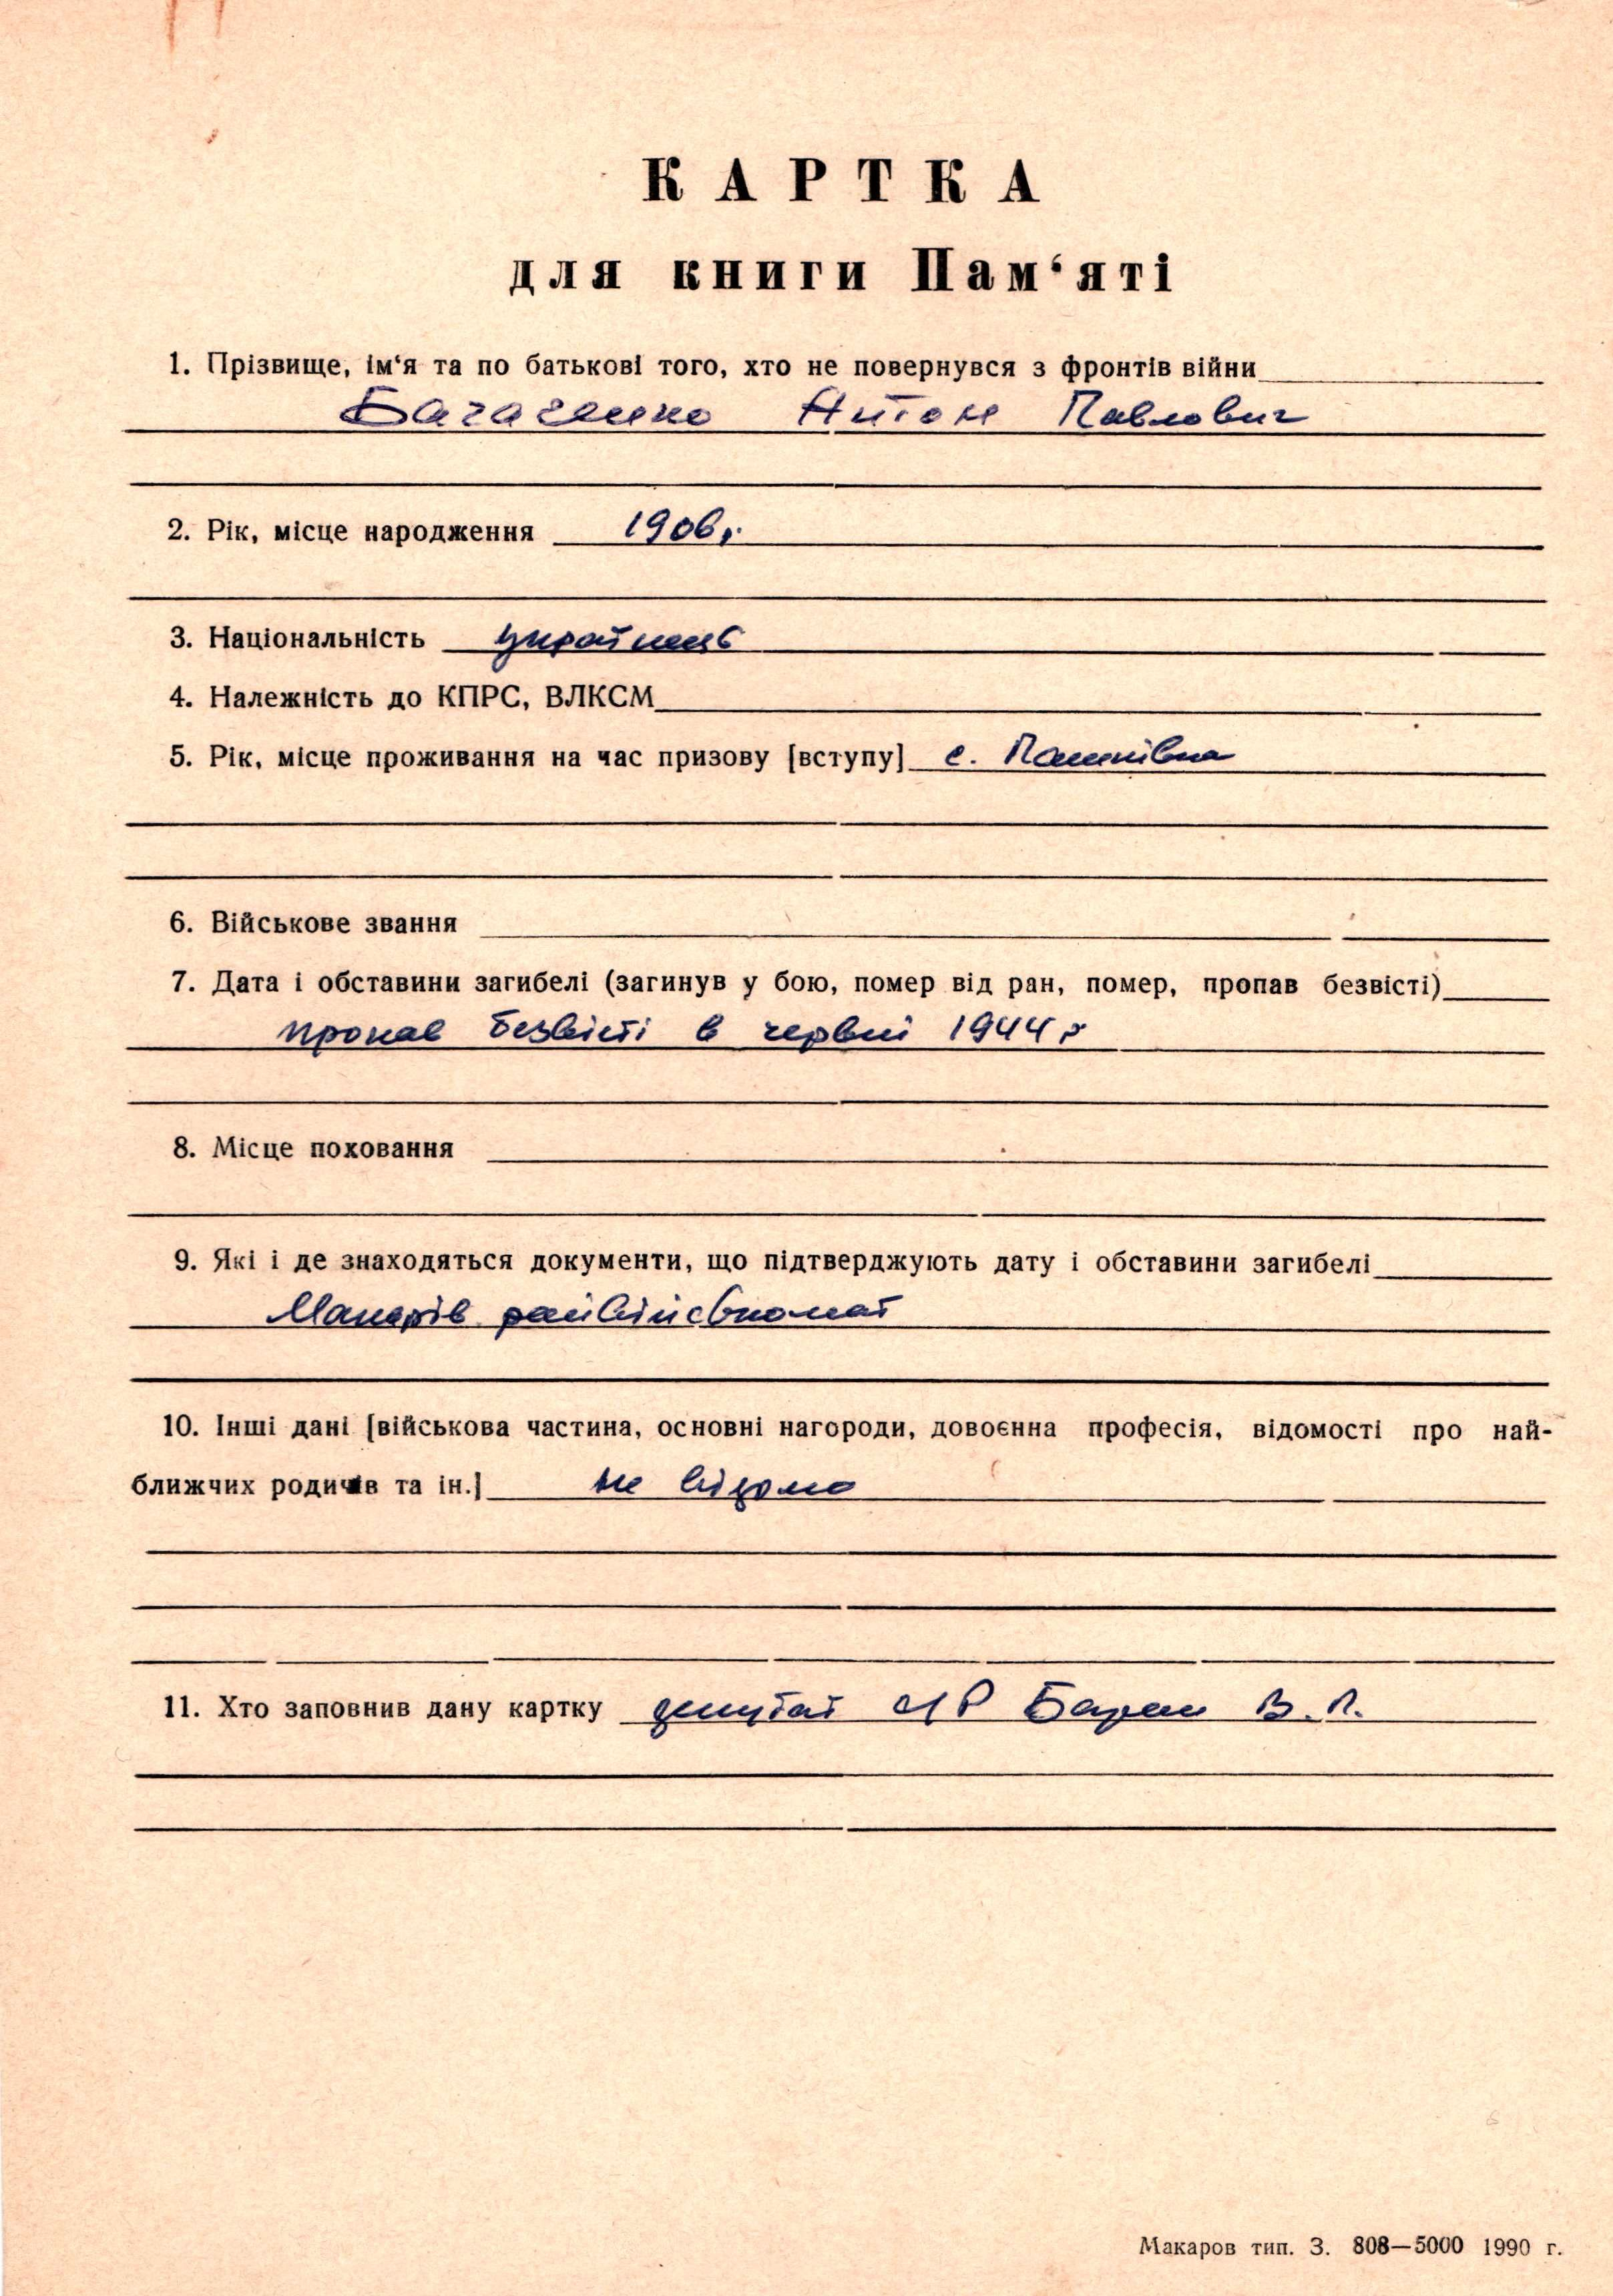 КАРТКА
для книги Пам‘яті
1. Прізвище, ім‘я та по батькові того, хто не повернувся з фронтів війни
Антон Павлович
2. Рік, місце народження 1906 р.
3. Національність українець
4. Належність до КПРС, ВЛКСМ
5. Рік, місце проживання на час призову [вступу] с. Пашківка
6. Військове звання
7. Дата і обставини загибелі (загинув у бою, помер від ран, помер, пропав безвісті)
пропав безвісті в червні 1944 р
8. Місце поховання
9. Які і де знаходяться документи, що підтверджують дату і обставини загибелі
Макарів райвійськомат
10. Інші дані [військова частина, основні нагороди, довоєнна професія, відомості про най-
ближчих родичів та ін.] не відомо
11. Хто заповнив дану картку депутат В. П.
Макаров тип. З. 808—5000 1990 г.